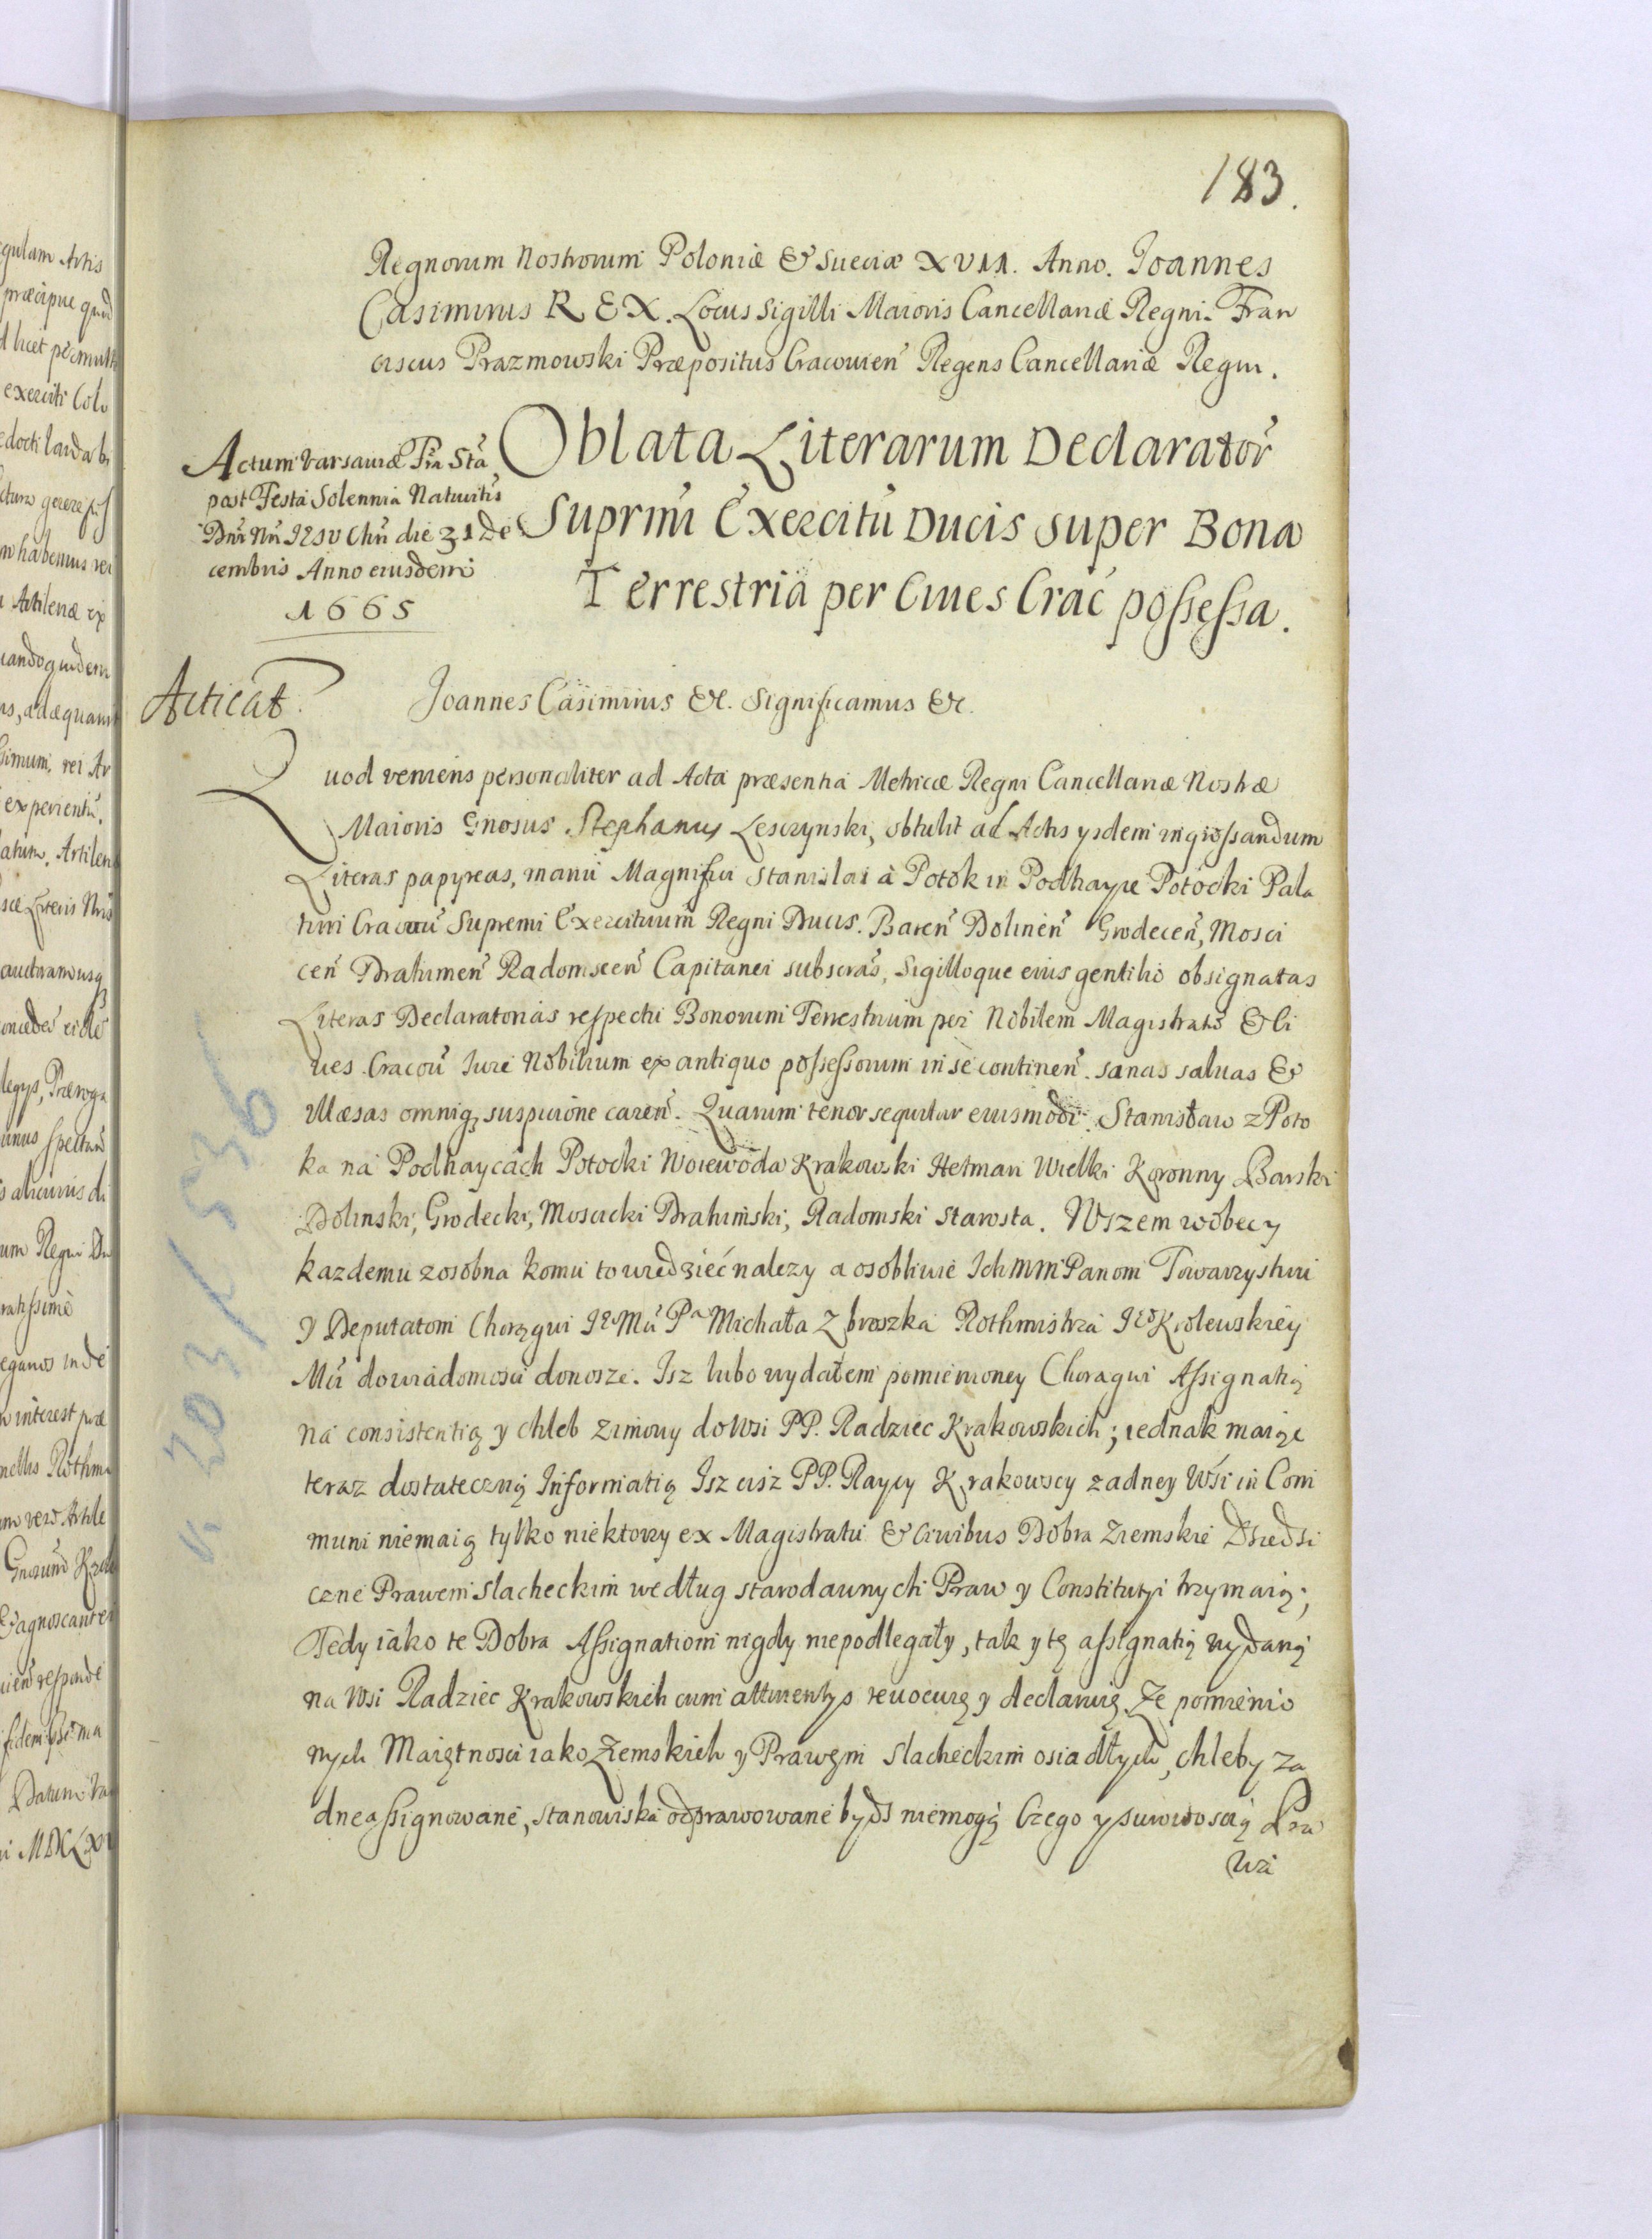 183.
Regnorum Nostrorum Poloniæ & Sueciæ XVII. Anno. Joannes
Casimirus REX. Locus Sigilli Maioris Cancellariæ Regni. Fran
ciscus Prazmowski Præpositus Cracovien̄ Regens Cancellariæ Regni.
Actum Varsaviæ Fr̄ia Stā
post Festa Solennia Nativit̄is
Dn̄i Nr̄i IESV Chr̄i die 31 De
cembris Anno eiusdem
1665
Oblata Literarum Declarator̄
Suprmi Exercitū Ducis super Bona
Terrestria per Ciues Crac̄ possessa.
Acticat.
Joannes Casimirus &c. Significamus &c.
Quod veniens personaliter ad Acta præsentia Metricæ Regni Cancellariæ Nostræ
Maioris Gnosus Stephanus Lesczynski, obtulit ad Actis ysdem ingrossandum
Literas papyreas, manu Magnifici Stanislai à Potok in Podhayce Potocki Pala
tini Cracov̄ Supremi Exercituum Regni Ducis. Baren̄ Dolinen̄ Grodecen̄, Mosci
cen̄ Drahimen̄ Radomscen̄ Capitanei subscras̄, Sigilloque eius gentilio obsignatas
Literas Declaratorias respectu Bonorum Terrestrium per Nobilem Magistratū & Ci
ues Cracov̄ Iure Nobilium ex antiquo possessorum in se continen̄. sanas saluas &
illæsas omniq; suspicione caren̄. Quarum tenor sequitur eiusmodi. Stanisław z Poto
ka na Podhaycach Potocki Woiewoda Krakowski Hetman Wielki Koronny Barski
Dolinski, Grodecki, Moscicki Drahimski, Radomski Starosta. Wszem wobec y
kazdemu zosobna komu to wiedzieć nalezy a osobliwie Ich MM Panom Towarzystwu
y Deputatom Chorągwi Ieo Mci Pa Michała Zbroszka Rothmistrza Ieo Krolewskiey
Mci do wiadomosci donosze. Isz lubo wydałem pomienioney Choragwi Assignatią
na consistentią y chleb zimowy do Wsi PP. Radziec Krakowskich; iednak maiąc
teraz dostateczną Informatią Isz cisz PP. Raycy Krakowscy zadney Wsi in Com
muni niemaią tylko niektorzy ex Magistratu & Civibus Dobra Ziemskie Dziedzi
czne Prawem Slacheckim według starodawnych Praw y Constitutyi trzymaią;
Tedy iako te Dobra Assignatiom nigdy niepodlegały, tak y tę assignatią wydaną
na Wsi Radziec Krakowskich cum attinentys revocuię y declaruię. Ze pomienio
nych Maiętnosci iako Ziemskich y Prawem Slacheckim osiadłych, chleby za
dne assignowane, stanowiska odprawowane bydz niemogą Czego y surowoscią Pra
wa